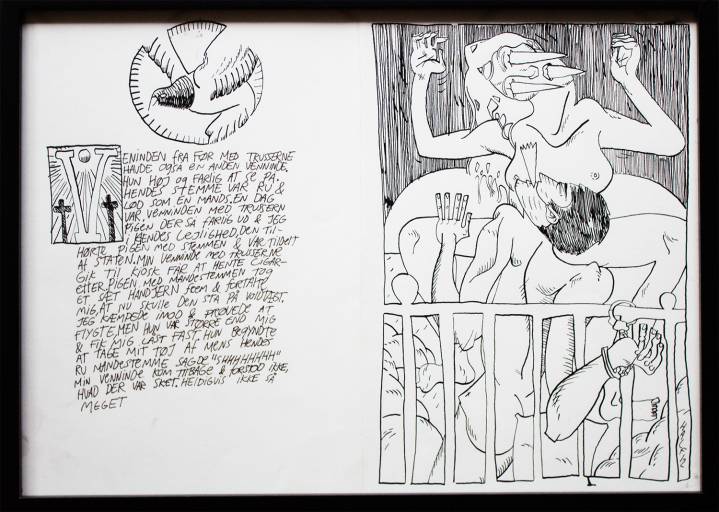 VENINDEN FRA FØR MED TRUSSERNE
HAVDE OGSÅ EN ANDEN VENINDE.
HUN HØJ OG FARLIG AT SE PÅ.
HENDES STEMME VAR RU &
LØD SOM EN MANDS. EN DAG
VAR VENINDEN MED TRUSSERN
PIGEN DER SÅ FARLIG UD & JEG
I HENDES LEJLIGHED, DEN TIL-
HØRTE PIGEN MED STEMMEN & VAR TILDELT
AF STATEN. MIN VENINDE MED TRUSSERNE
GIK TIL KIOSK FAR AT HENTE CIGAR-
ETTER. PIGEN MED MANDESTEMMEN TOG
ET SÆT HÅNDJERN FREM & FORTALTE
MIG, AT NU SKULLE DEN STÅ PÅ VOLDTÆGT.
JEG KÆMPEDE IMOD & PRØVEDE AT
FLYGTE, MEN HUN VAR STØRRE END MIG
& FIK MIG LÅST FAST. HUN BEGYNDTE
AT TAGE MIT TØJ AF MENS HENDES
RU MANDESTEMME SAGDE "SHHHHHHHH"
MIN VENINDE KOM TILBAGE & FORSTOD IKKE,
HVAD DER VAR SKET. HELDIGVIS IKKE SÅ
MEGET